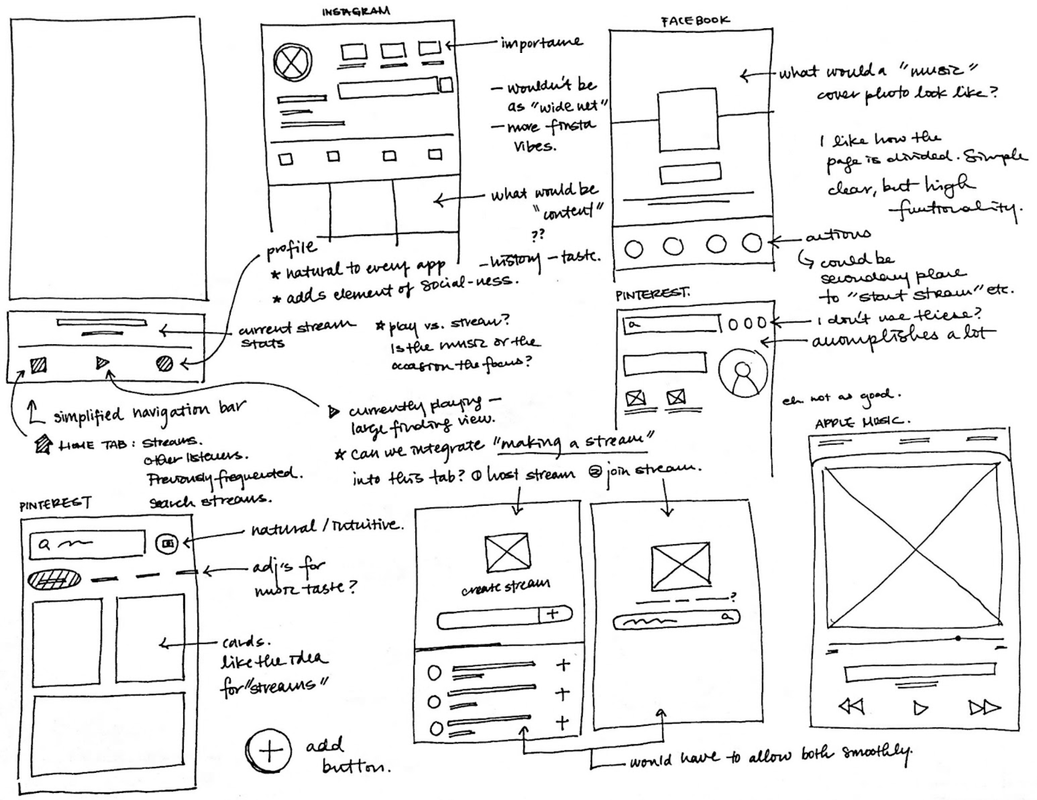 INSTAGRAM
importance
— wouldn't be
as "wide net"
— more finsta
vibes.
what would be
"content"
??
— history — taste.
FACEBOOK
what would a "music"
cover photo look like?
I like how the
page is divided. Simple
clear, but high
functionality.
actions
could be
secondary place
to "start stream" etc.
profile
* natural to every app
* adds element of social-ness.
current stream
stats
* play vs. stream?
Is the music or the
occasion the focus?
simplified navigation bar
HOME TAB: streams.
other listeners.
Previously frequented.
search streams.
currently playing —
large finding view.
* can we integrate "making a stream"
into this tab? ① host stream ② join stream.
PINTEREST.
a
I don't use these?
accomplishes a lot
eh not as good.
APPLE MUSIC.
PINTEREST
a
natural / intuitive.
adj's for
music taste?
cards.
like the idea
for "streams"
+ add
button.
create stream
+
+
+
+
?
a
would have to allow both smoothly.